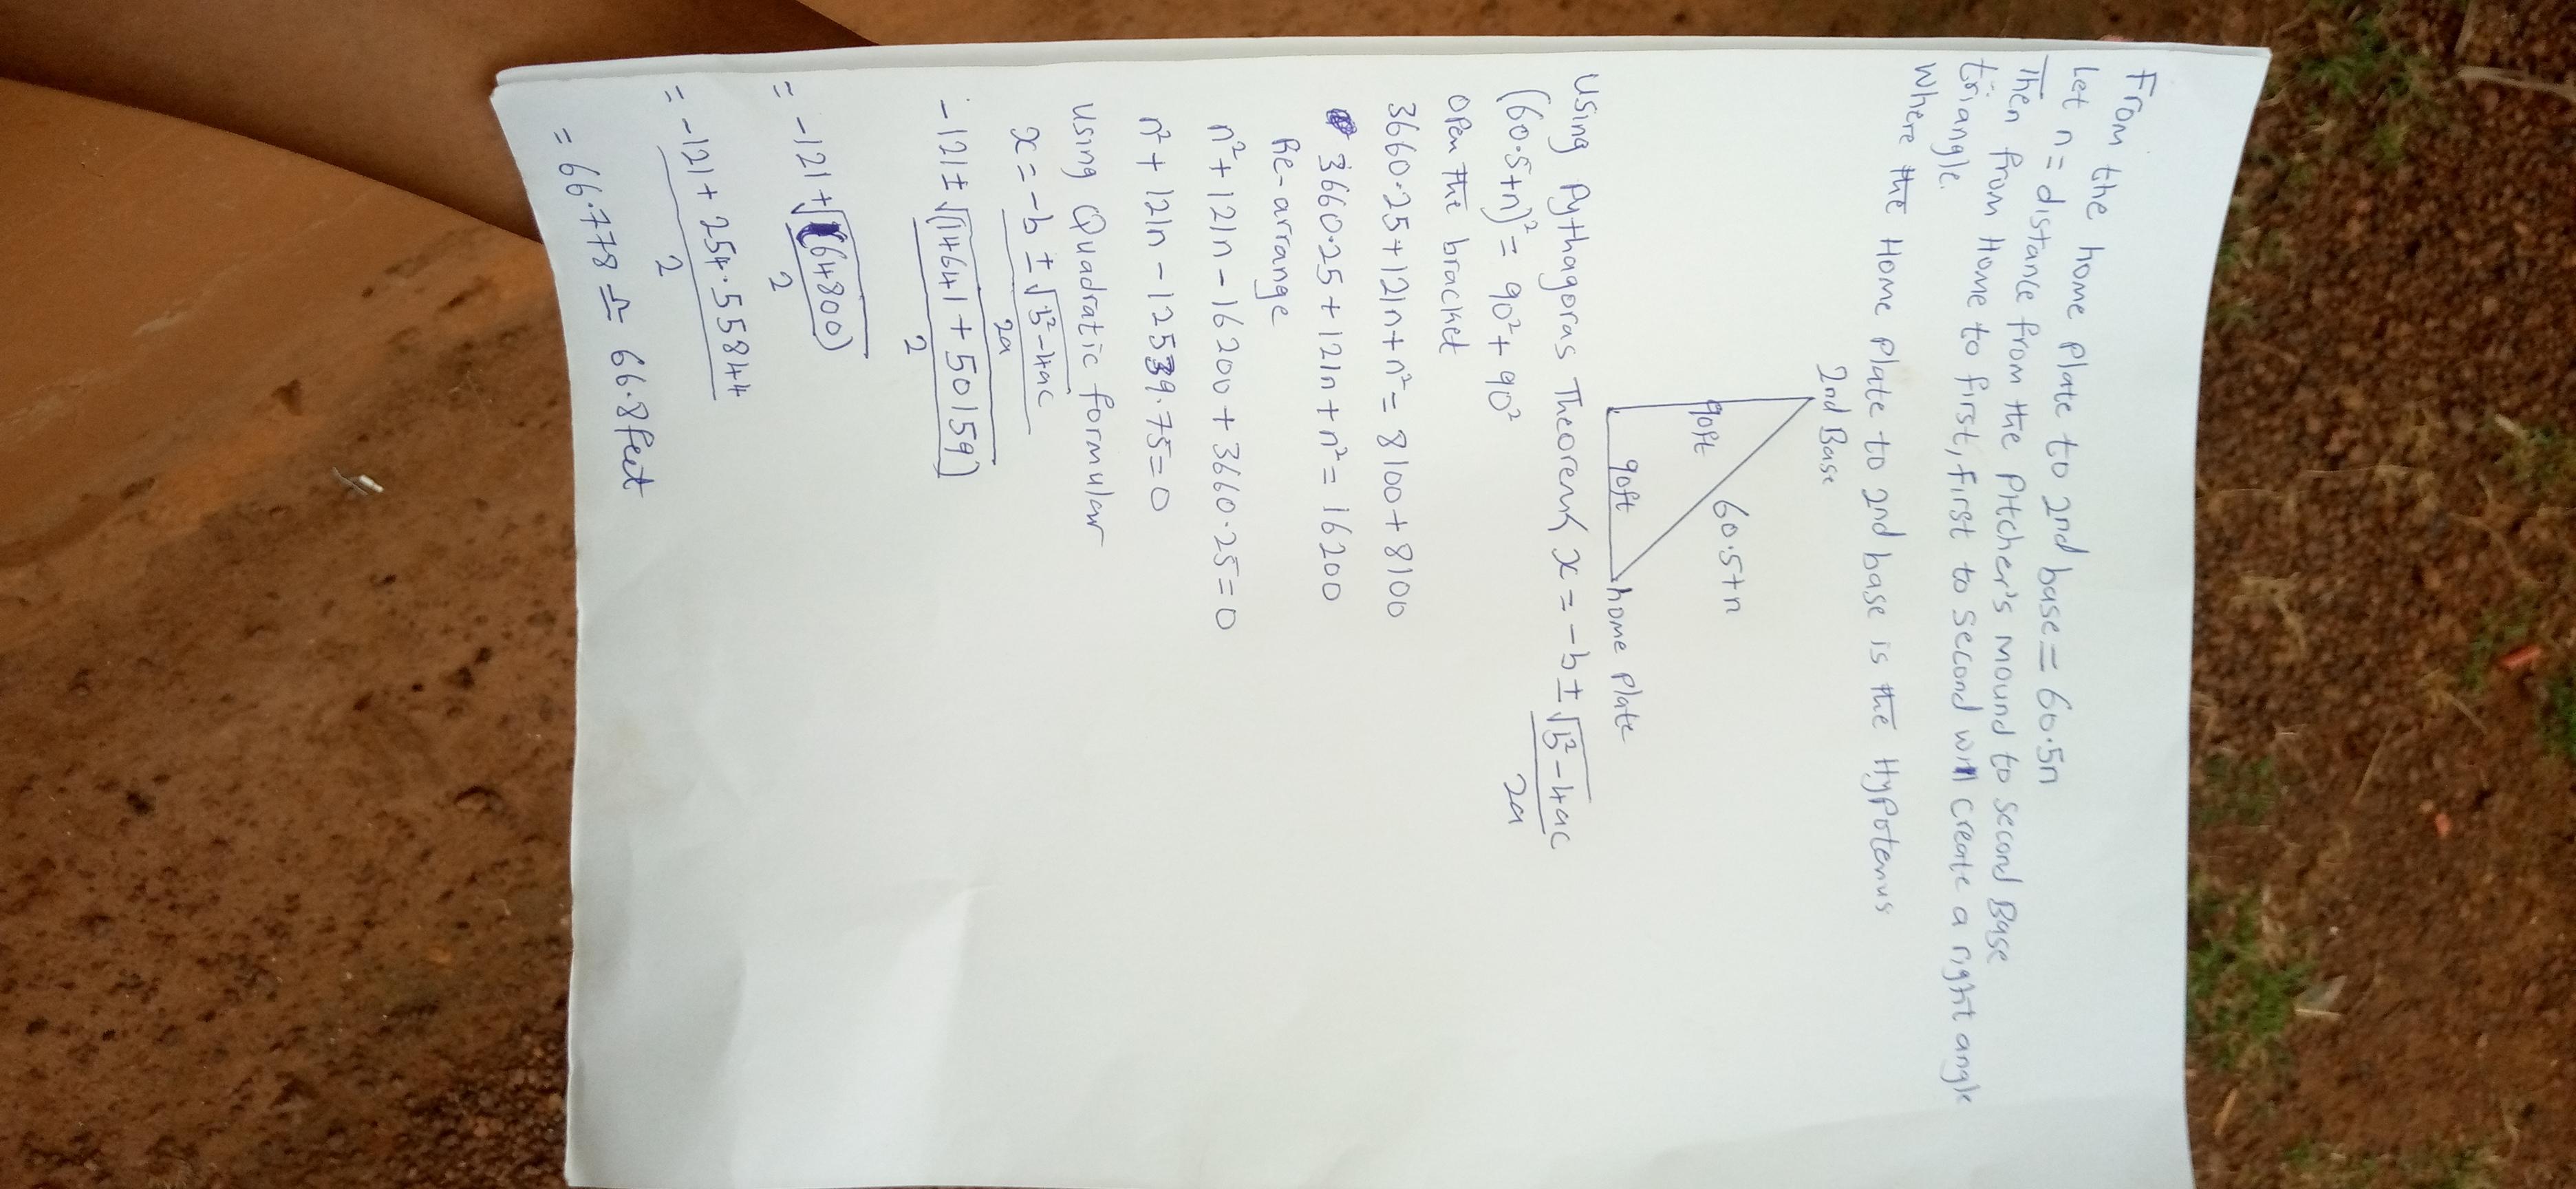 From the home plate to 2nd base = 60.5n
Let n = distance from the pitcher's mound to second Base
Then from Home to first, first to second will create a right angle
triangle.
Where the Home plate to 2nd base is the Hypotenus
2nd Base
90ft
60.5+n
90ft
home plate
Using Pythagoras Theorem x = -b ± √b² - 4ac
2a
(60.5+n)² = 90² + 90²
Open the bracket
3660.25 + 121n + n² = 8100 + 8100
3660.25 + 121n + n² = 16200
Re-arrange
n² + 121n - 16200 + 3660.25 = 0
n² + 121n - 12539.75 = 0
Using Quadratic formular
x = -b ± √b² - 4ac
2a
-121 ± √(14641 + 50159)
2
= -121 + √(64800)
2
= -121 + 254.55844
2
= 66.778 ≏ 66.8 feet